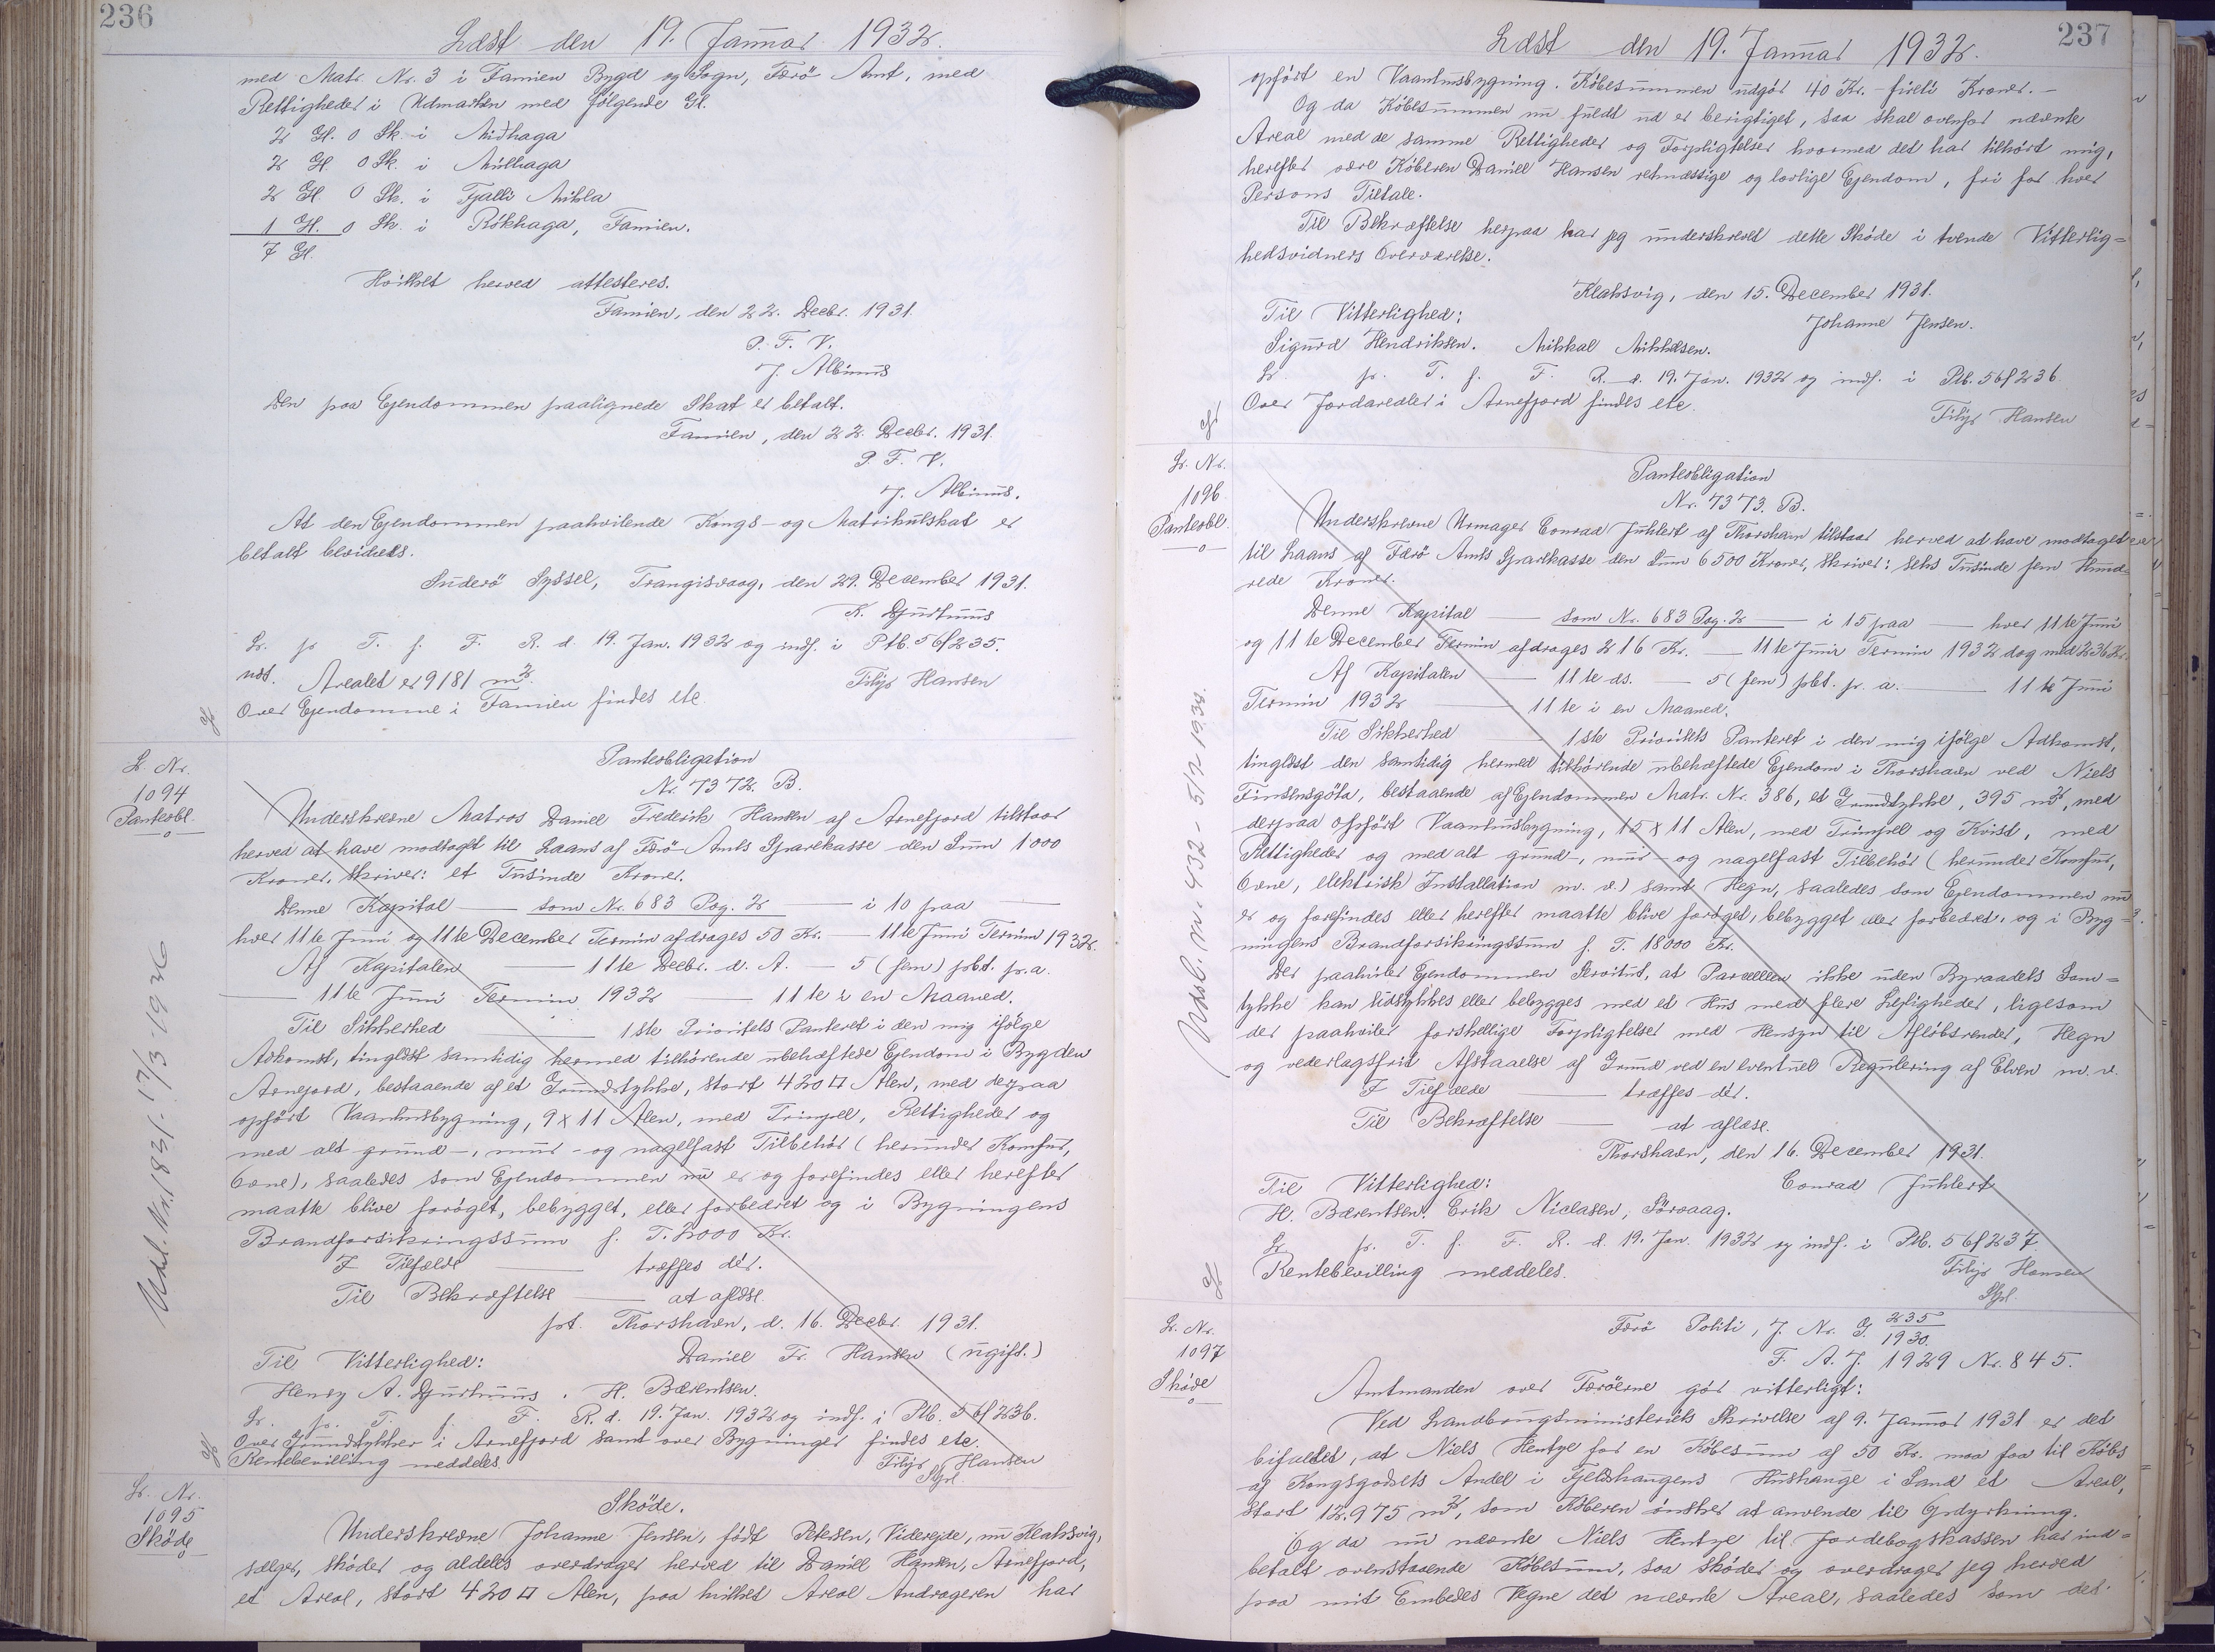 236
Læst den 19. Januar 1932.
med Matr. Nr. 3 i Famien Bygd og Sogn, Færö Amt, med
Rettigheder i Udmarken med følgende Gl.
2 Gl. 0 Sk. i Miðhaga
2 Gl. 0 Sk. i Múlhaga
2 Gl. 0 Sk. i Fjalli Mikla
1 Gl. 0 Sk. i Rókhaga, Famien.
7 Gl.
Hvilket herved attesteres.
Famien, den 22. Decbr. 1931.
P. F. V.
J. Albinus
Den paa Ejendommen paalignede Skat er betalt.
Famien, den 22. Decbr. 1931.
P. F. V.
J. Albinus.
At den Ejendommen paahvilende Kongs- og Matrikulskat er
betalt bevidnes.
Suderö Syssel, Trangisvaag, den 29. December 1931.
K. Djurhuus
Lr. pr T. f. F. R. d. 19. Jan. 1932 og indf. i Ptb. 56f235.
udt. Arealet er 9181 m2.
Filip Hansen
Over Ejendomme i Famien findes etc.
L. Nr.
1094
Panteobl.
Panteobligation
Nr. 7372. B.
Underskrevne Matros Daniel Frederik Hansen af Arnefjord tilstaar
herved at have modtaget til Laans af Færö Amts Sparekasse den Sum 1000
Kroner, skriver: et Tusinde Kroner.
Denne Kapital — som Nr. 683 Pag. 2 — i 10 paa —
hver 11te Juni og 11te December Termin afdrages 50 Kr. — 11te Juni Termin 1932.
Af Kapitalen — 11te Decbr. d. A. — 5 (fem) pct. p.a.
— 11te Juni Termin 1932 — 11te i en Maaned.
Til Sikkerhed — 1ste Prioritets Panteret i den mig ifølge
Adkomst, tinglæst samtidig hermed tilhørende ubehæftede Ejendom i Bygden
Arnefjord, bestaaende af et Grundstykke, stort 420 □ Alen, med derpaa
opført Vaanhusbygning, 9 x 11 Alen, med Trimpel, Rettigheder og
med alt grund-, muur- og nagelfast Tilbehör (herunder Komfur,
Ovne), saaledes som Ejendommen nu er og forefindes eller herefter
maatte blive forøget, bebygget, eller forbedret og i Bygningens
Brandforsikringssum f. T. 2000 Kr.
I Tilfælde — træffes dèr.
Til Bekræftelse — at aflæse.
pt. Thorshavn, d. 16. Decbr. 1931.
Til Vitterlighed: Daniel Fr. Hansen (ugift.)
Henry A. Djurhuus. H. Bærentsen.
Lr. pr. T. f. F. R. d. 19. Jan. 1932 og indf. i Ptb. 56f236.
Over Grundstykker i Arnefjord samt over Bygninger findes etc.
Rentebevilling meddeles. Filip Hansen
Udsl. Nr. 183/. 17/3-1936
Lr. Nr.
1095
Skøde
Sköde.
Underskrevne Johanne Jensen, født Petersen, Viderejde, nu Klaksvig,
sælger, skøder og aldeles overdrager herved til Daniel Hansen, Arnefjord,
et Areal, stort 420 □ Alen, paa hvilket Areal Andrageren har
237
Læst den 19. Januar 1932.
opfört en Vaanhusbygning. Köbesummen udgör 40 Kr. - fireti Kroner. -
Og da Köbesummen nu fuldt ud er berigtiget, saa skal ovenfor nævnte
Areal med de samme Rettigheder og Forpligtelser hvormed det har tilhört mig,
herefter være Köberen Daniel Hansen retmæssige og lovlige Ejendom, fri for hver
Persons Tiltale.
Til Bekræftelse herpaa har jeg underskrevet dette Sköde i tvende Vitterlig=
hedsvidners Overværelse.
Klaksvig, den 15. December 1931.
Til Vitterlighed: Johanne Jensen.
Sigurd Hendriksen. Mikkal Mikkelsen.
Lr. pr. T. f. F. R. d. 19. Jan. 1932 og indf. i Ptb. 56f236.
Over Jordarealer i Arnefjord findes etc.
Filip Hansen
Lr. Nr.
1096
Panteobl.
Panteobligation
Nr. 7373. B.
Underskrevne Urmager Conrad Juhlert af Thorshavn tilstaar herved at have modtaget
til Laans af Færö Amts Sparekasse den Sum 6500 Kroner, skriver: seks Tusinde fem Hund=
rede Kroner.
Denne Kapital — som Nr. 683 Pag. 2 — i 15 paa — hver 11te Juni
og 11te December Termin afdrages 216 Kr. — 11te Juni Termin 1932 dog med 236 Kr.
Af Kapitalen — 11te ds. — 5 (fem) pct. p. a. — 11te Juni
Termin 1932 — 11te i en Maaned.
Til Sikkerhed — 1ste Prioritets Panteret i den mig ifölge Adkomst,
tinglæst den samtidig hermed tilhörende ubehæftede Ejendom i Thorshavn ved Niels
Finsensgöta, bestaaende af Ejendommen Matr. Nr. 386, et Grundstykke, 395 m2, med
derpaa opfört Vaanhusbygning, 15 x 11 Alen, med Trimpel og Kvist, med
Rettigheder og med alt grund-, mur- og nagelfast Tilbehör (herunder Komfur,
Ovne, elektrisk Installation m. v.) samt Hegn, saaledes som Ejendommen nu
er og forefindes eller herefter maatte blive foröget, bebygget eller forbedret, og i Byg=
ningens Brandforsikringssum f. T. 18000 Kr.
Der paahviler Ejendommen Servitut, at Parcellen ikke uden Byraadets Sam=
tykke kan udstykkes eller bebygges med et Hus med flere Lejligheder, ligesom
der paahviler forskellige Forpligtelser med Hensyn til Aflöbsrender, Hegn
og vederlagsfrit Afstaaelse af Grund ved en eventuel Regulering af Elven m. v.
I Tilfælde — træffes dèr.
Til Bekræftelse — at aflæse.
Thorshavn, den 16. December 1931.
Til Vitterlighed: Conrad Juhlert
H. Bærentsen. Erik Niclasen, Sörvaag.
Lr. pr. T. f. F. R. d. 19. Jan. 1932 og indf. i Ptb. 56f237.
Rentebevilling meddeles. Filip Hansen
Udsl. nr. 432 - 5/2 1934.
Lr. Nr.
1097
Skøde
Færö Politi, J. Nr. G. 235/1930.
F. A. J. 1929 Nr. 845.
Amtmanden over Færöerne gör vitterligt:
Ved Landbrugsministeriets Skrivelse af 9. Januar 1931 er det
bifaldet, at Niels Hentze for en Köbesum af 50 Kr. maa faa til Köbs
af Kongsgodsets Andel i Fjeldshaugens Hushauge i Sand et Areal,
stort 12.975 m2, som Köberen önsker at anvende til Opdyrkning.
Og da nu nævnte Niels Hentze til Jordebogskassen har ind=
betalt ovenstaaende Köbesum, saa skøder og overdrager jeg herved
paa mit Embedes Vegne det nævnte Areal, saaledes som det